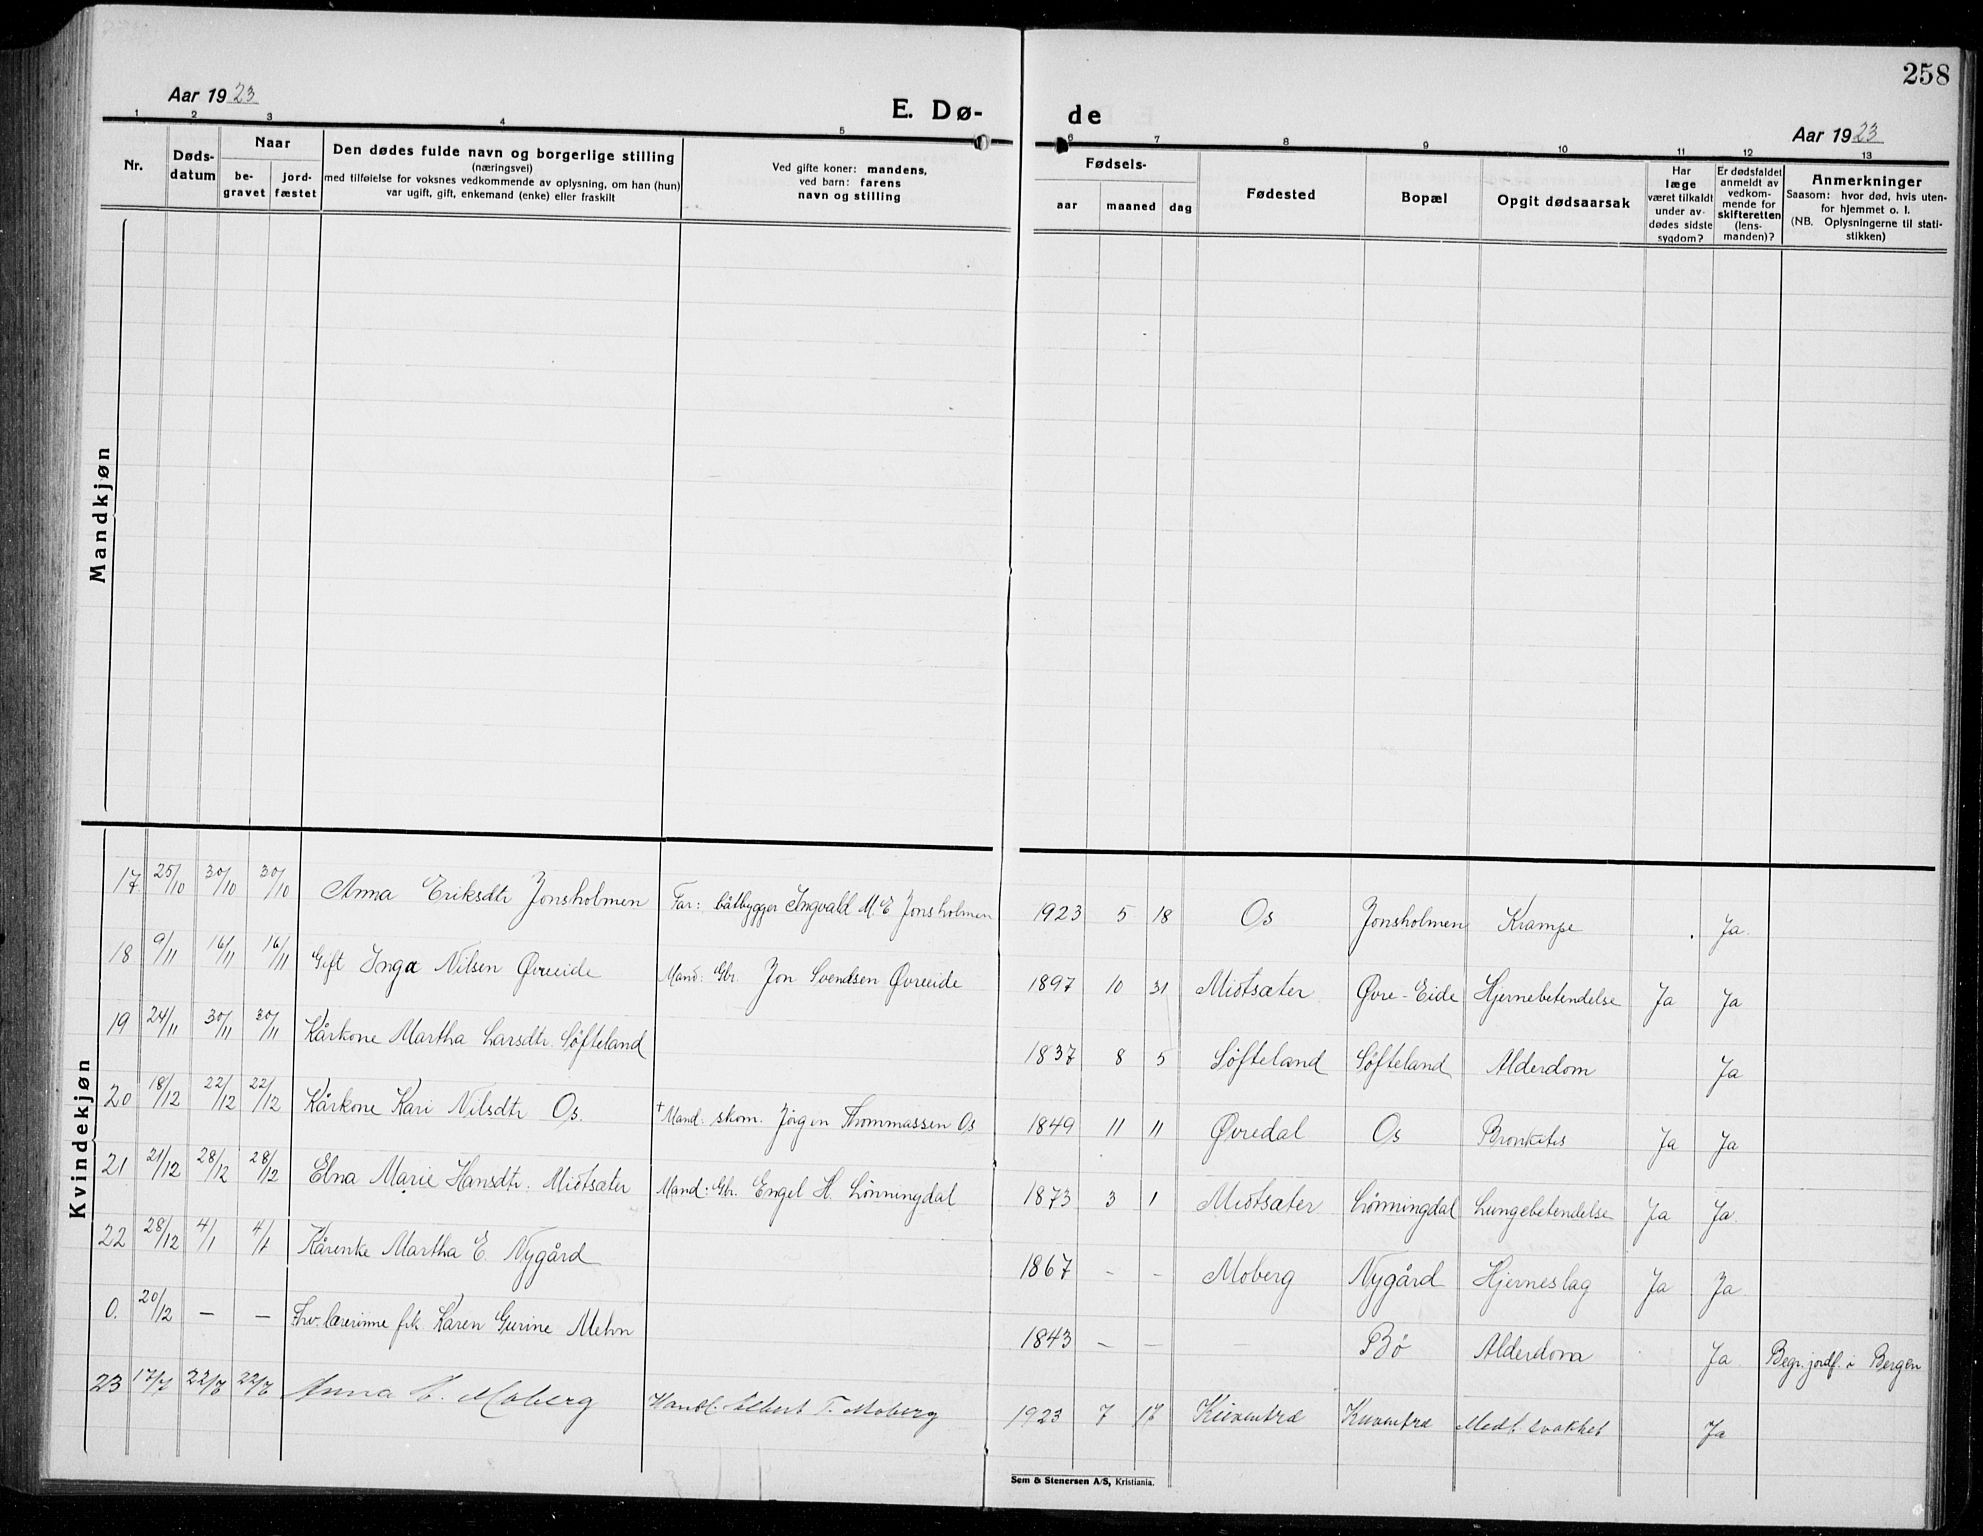 258
Aar 1923
E. Dø-
de
Aar 1923
1 2 3 4 5 6 7 8 9 10 11 12 13
Nr.
Døds-
datum
Naar
be-
gravet
jord-
fæstet
Den dødes fulde navn og borgerlige stilling
(næringsvei)
med tilføielse for voksnes vedkommende av oplysning, om han (hun)
var ugift, gift, enkemand (enke) eller fraskilt
Ved gifte koner: mandens,
ved barn: farens
navn og stilling
Fødsels-
aar
maaned
dag
Fødested
Bopæl
Opgit dødsaarsak
Har
læge
været tilkaldt
under av-
dødes sidste
sygdom?
Er dødsfaldet
anmeldt av
vedkom-
mende for
skifteretten
(lens-
manden)?
Anmerkninger
Saasom: hvor død, hvis uten-
for hjemmet o. l.
(NB. Oplysningerne til stati-
stikken)
Mandkjøn
Kvindekjøn
17 25/10 30/10 30/10 Anna Eriksdtr Jonsholmen Far: båtbygger Ingvald M. E Jonsholmen 1923 5 18 Os Jonsholmen Krampe Ja
18 9/11 16/11 16/11 Gift Inga Nilsen Øvreeide Mand: Gbr. Jon Svendsen Øvreeide 1897 10 31 Midtsæter Øvre-Eide Hjernebetendelse Ja Ja
19 24/11 30/11 30/11 Kårkone Martha Larsdtr. Søfteland 1837 8 5 Søfteland Søfteland Alderdom Ja
20 18/12 22/12 22/12 Kårkone Kari Nilsdtr Os. + Mand: skom. Jørgen Thommassen Os 1849 11 11 Øvredal Os Bronkitis Ja Ja
21 21/12 28/12 28/12 Elna Marie Hansdtr. Midtsæter Mand: Gbr. Engel H. Lønningdal 1873 3 1 Midtsæter Lønningdal Lungebetendelse Ja Ja
22 28/12 4/1 4/1 Kårenke Martha E. Nygård 1867 - - Moberg Nygård Hjerneslag Ja Ja
0. 20/12 - - Fhv. lærerinne frk Karen Gurine Mehn 1843 - - Bø Alderdom Ja Begr. jordf. i Bergen
23 17/7 22/7 22/7 Anna Moberg Handl. Albert T. Moberg 1923 7 17 Kuventræ Kuventræ Medf. svakhet Ja
Sem & Stenersen A/S, Kristiania.